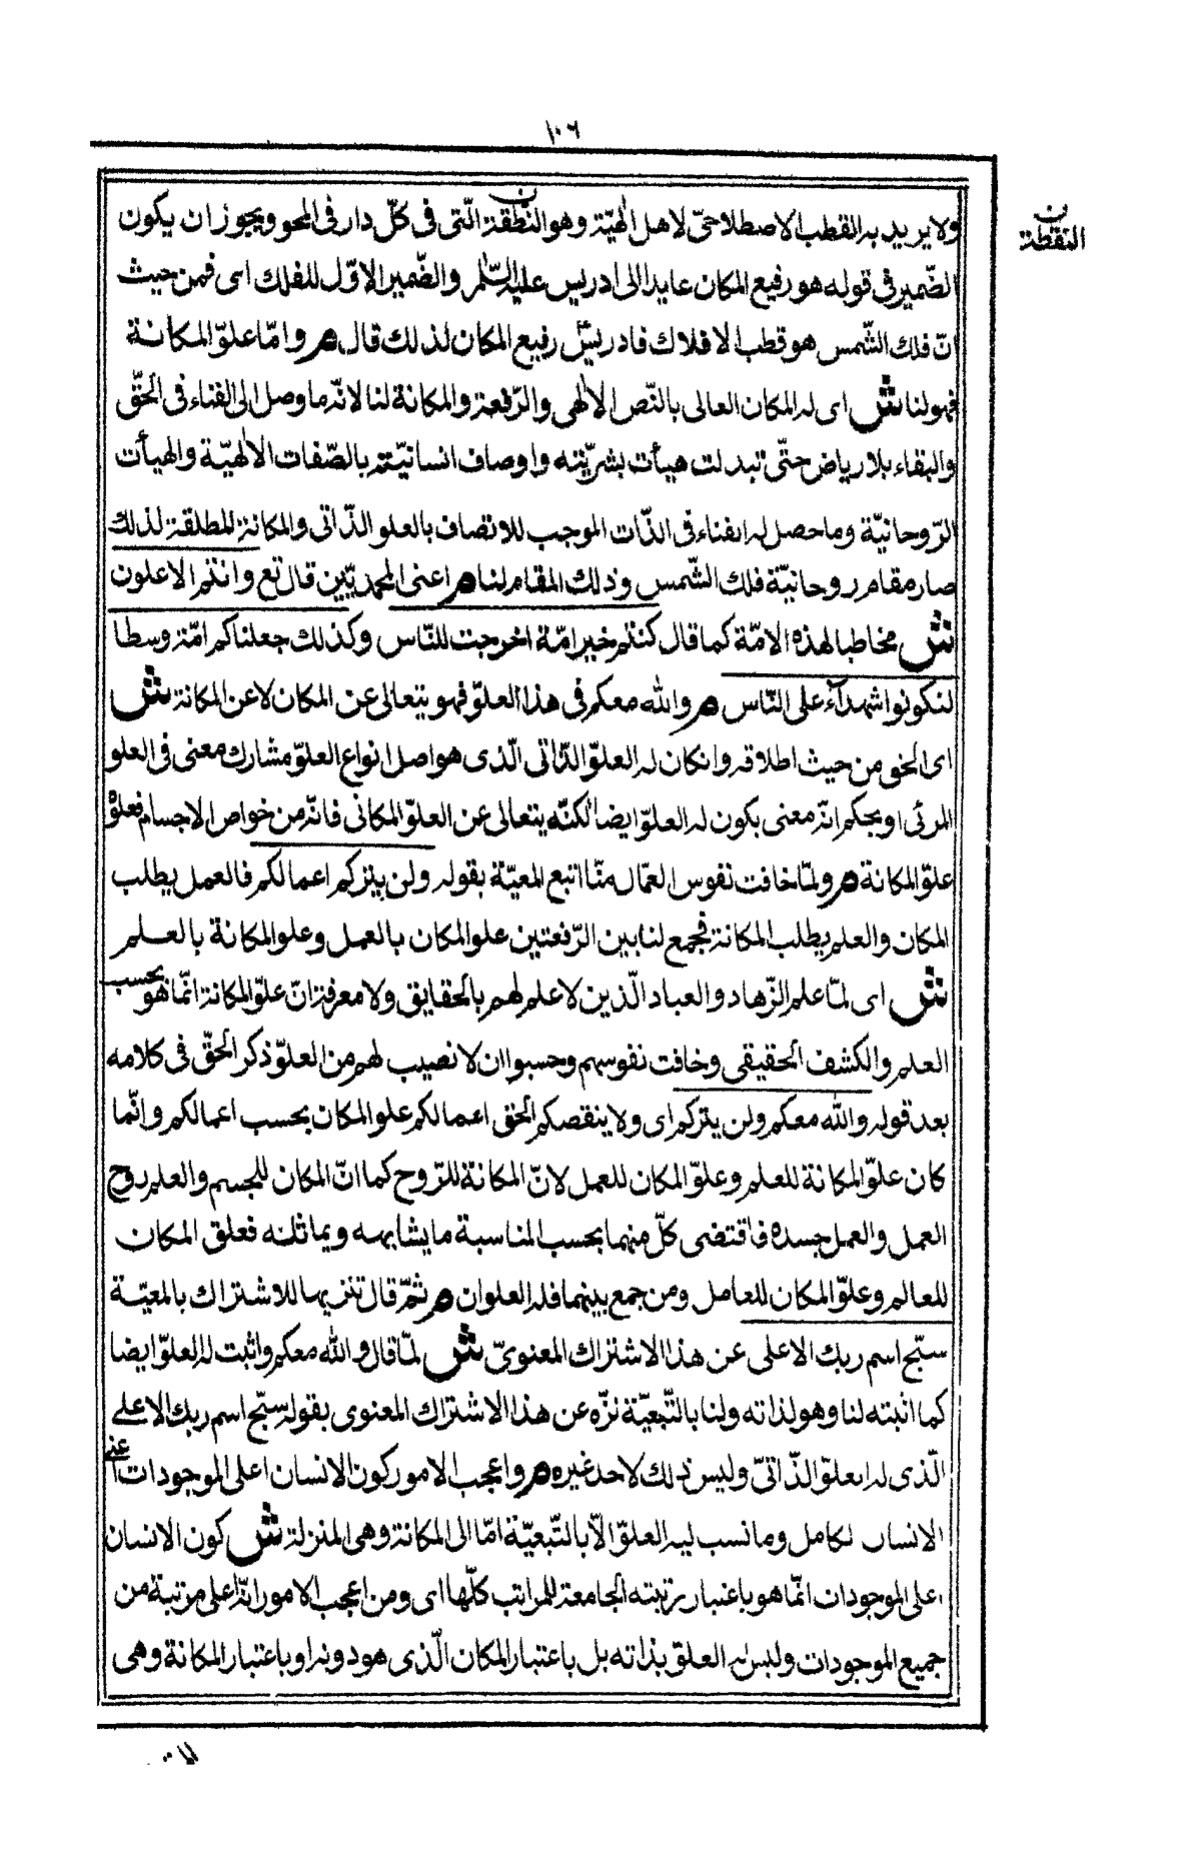 ١٠٦
ولا يريد به القطب الاصطلاحىّ لاهل الهيّة وهو النطقة الّتى فى كلّ دار فى المحو ويجوز ان يكون
ن
النقطة
الضّمير فى قوله هو رفيع المكان عايدا الى ادريس عليه السّلم والضّمير الاوّل للفلك اى فمن حيث
انّ فلك الشّمس هو قطب الافلاك فادريسّ رفيع المكان لذلك قال م وامّا علوّ المكانة
فهو لنا ش اى له المكان العالى بالنّص الالهى والرّفعة والمكانة لنا لانّه ما وصل الى الفناء فى الحقّ
والبقاء بلا رياض حتّى تبدلت هيأت بشريّته واوصاف انسانيّته بالصّفات الالهيّة والهيأت
الرّوحانيّة وما حصل له الفناء فى الذّات الموجب للاتصاف بالعلو الذّاتى والمكانة المطلقة لذلك
صار مقام روحانيّة فلك الشّمس وذلك المقام لنا م اعنى المحمديّين قال تع وانتم الاعلون
ش مخاطبا لهذه الامّة كما قال كنتم خير امّة اخرجت للنّاس وكذلك جعلناكم امّة وسطا
لتكونوا شهدآء على النّاس م والله معكم فى هذا العلوّ فهو يتعالى عن المكان لا عن المكانة ش
اى الحق من حيث اطلاقه وانكان له العلوّ الذّاتى الّذى هو اصل انواع العلوّ مشارك معنى فى العلو
المرئى او بحكم انّه معنى بكون له العلوّ ايضا لكنّه يتعالى عن العلوّ المكانى فانّه من خواص الاجسام فعلوّه
علوّ المكانة م ولمّا خافت نفوس العمّال منّا اتبع المعيّة بقوله ولن يتركم اعمالكم فالعمل يطلب
المكان والعلم يطلب المكانة فجمع لنا بين الرّفعتين علو المكان بالعمل وعلو المكانة بالعلم
ش اى لمّا علم الزّهاد والعباد الّذين لا علم لهم بالحقايق ولا معرفة انّ علوّ المكانة انّما هو بحسب
العلم والكشف الحقيقى وخافت نفوسهم وحسبوا ان لا نصيب لهم من العلوّ ذكر الحقّ فى كلامه
بعد قوله والله معكم ولن يتركم اى ولا ينقصكم الحق اعمالكم علو المكان بحسب اعمالكم وانّما
كان علوّ المكانة للعلم وعلوّ المكان للعمل لانّ المكانة للرّوح كما انّ المكان للجسم والعلم روح
العمل والعمل جسده فاقتضى كلّ منهما بحسب المناسبة ما يشابهه ويماثله فعلق المكان
للعالم وعلوّ المكان للعامل ومن جمع بينهما فله العلوان م ثمّ قال تنزيها للاشتراك بالمعيّة
سبّح اسم ربك الاعلى عن هذا الاشتراك المعنوىّ ش لمّا قال والله معكم واثبت له العلوّ ايضا
كما اثبته لنا وهو لذاته ولنا بالتّبعيّة نزّه عن هذا الاشتراك المعنوى بقوله سبّح اسم ربك الاعلى
الّذى له العلوّ الذّاتىّ وليس ذلك لاحد غيره م واعجب الامور كون الانسان اعلى الموجودات اعنى
الانسان الكامل وما نسب اليه العلوّ الّا بالتّبعيّة امّا الى المكانة وهى المنزلة ش كون الانسان
اعلى الموجودات انّما هو باعتبار رتبته الجامعة للمراتب كلّها اى ومن اعجب الامور انّه اعلى مرتبة من
جميع الموجودات وليس له العلوّ بذاته بل باعتبار المكان الّذى هو دونه او باعتبار المكانة وهى